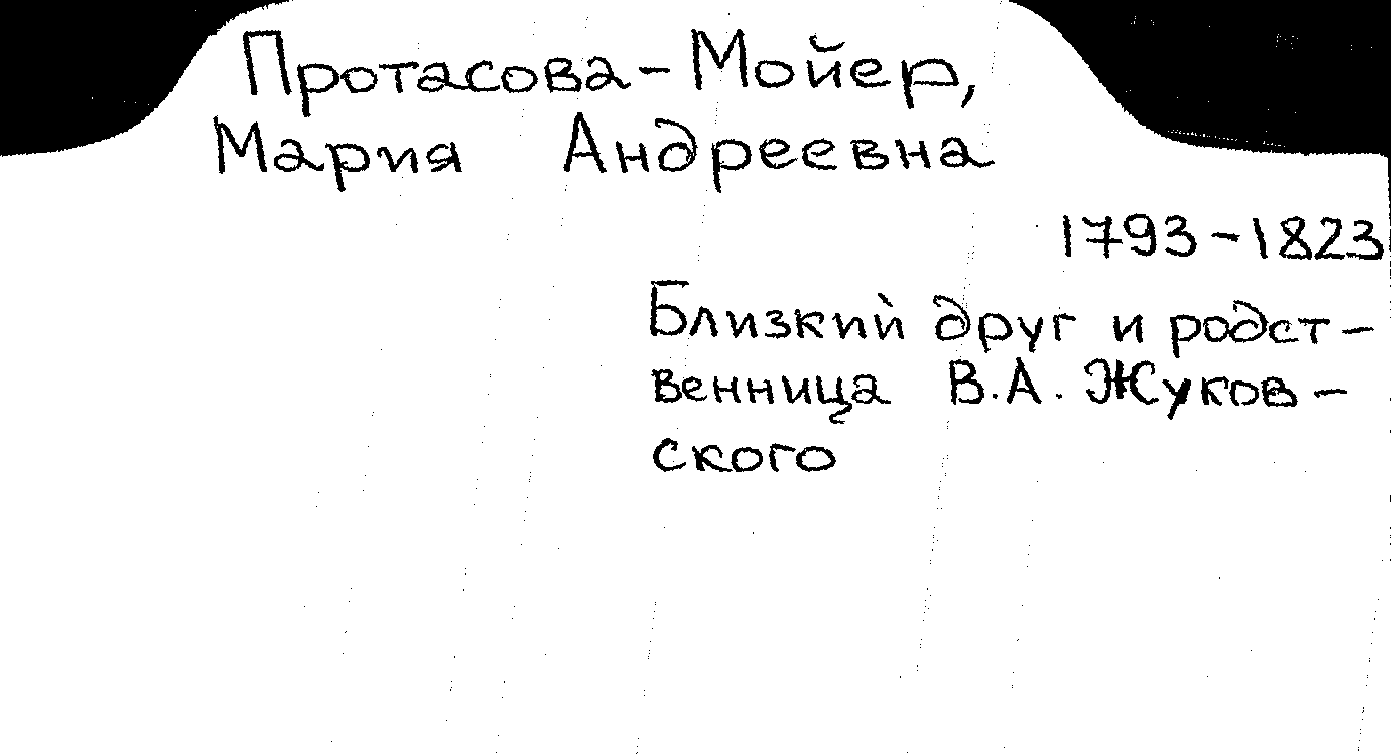 Протасова-Мойер,
Мария Андреевна
1793-1823
Близкий друг и родст-
венница В.А. Жуков-
ского